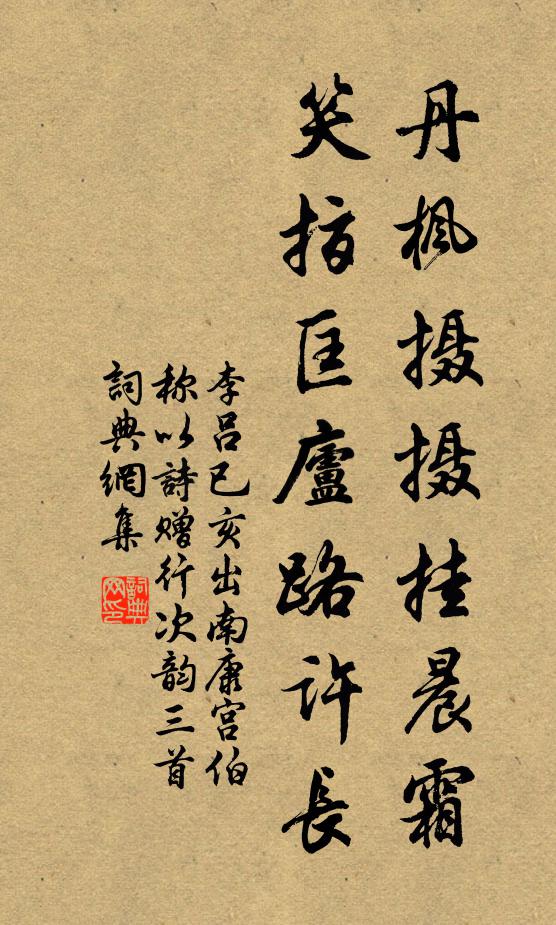 丹枫摄摄挂晨霜
笑指匡廬路许長
李吕已亥出南康宫伯
称以詩赠行次韵三首
詞典網集
詞典網印